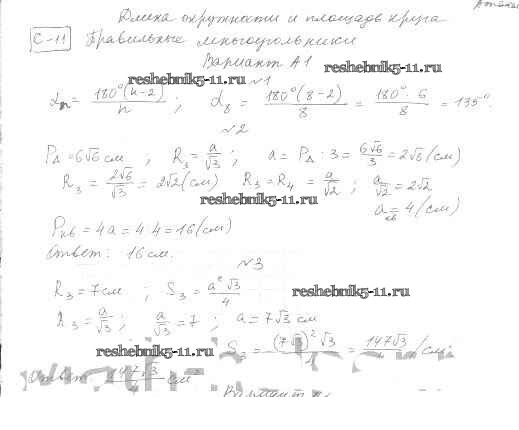 Атана
Длина окружности и площадь круга
С-11 Правильные многоугольники
Вариант А1
reshebnik5-11.ru
reshebnik5-11.ru
№1
αn = 180°(n-2)/n ; α8 = 180°(8-2)/8 = 180°·6/8 = 135°.
№2
PΔ = 6√6 см ; R3 = a/√3 ; a = PΔ : 3 = 6√6/3 = 2√6 (см)
R3 = 2√6/√3 = 2√2 (см) R3 = R4 = a/√2 ; a/√2 = 2√2
reshebnik5-11.ru
aкв = 4 (см)
Pкв = 4a = 4·4 = 16 (см)
Ответ: 16 см.
№3
R3 = 7 см ; S3 = a²√3/4
reshebnik5-11.ru
R3 = a/√3 ; a/√3 = 7 ; a = 7√3 см
reshebnik5-11.ru
S3 = (7√3)²√3/4 = 147√3/4 (см²
Ответ: 147√3/4 см²
Вариант